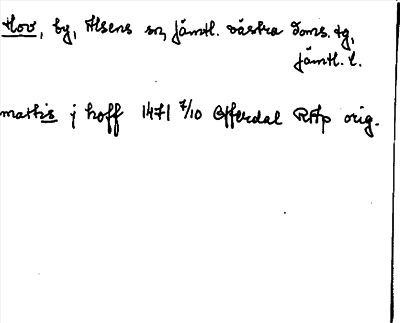 Hov, by, Alsens sn, Jämtl. västra doms. tg,
Jämtl. l.
mattis j hoff 1471 7/10 Offerdal RAp orig.